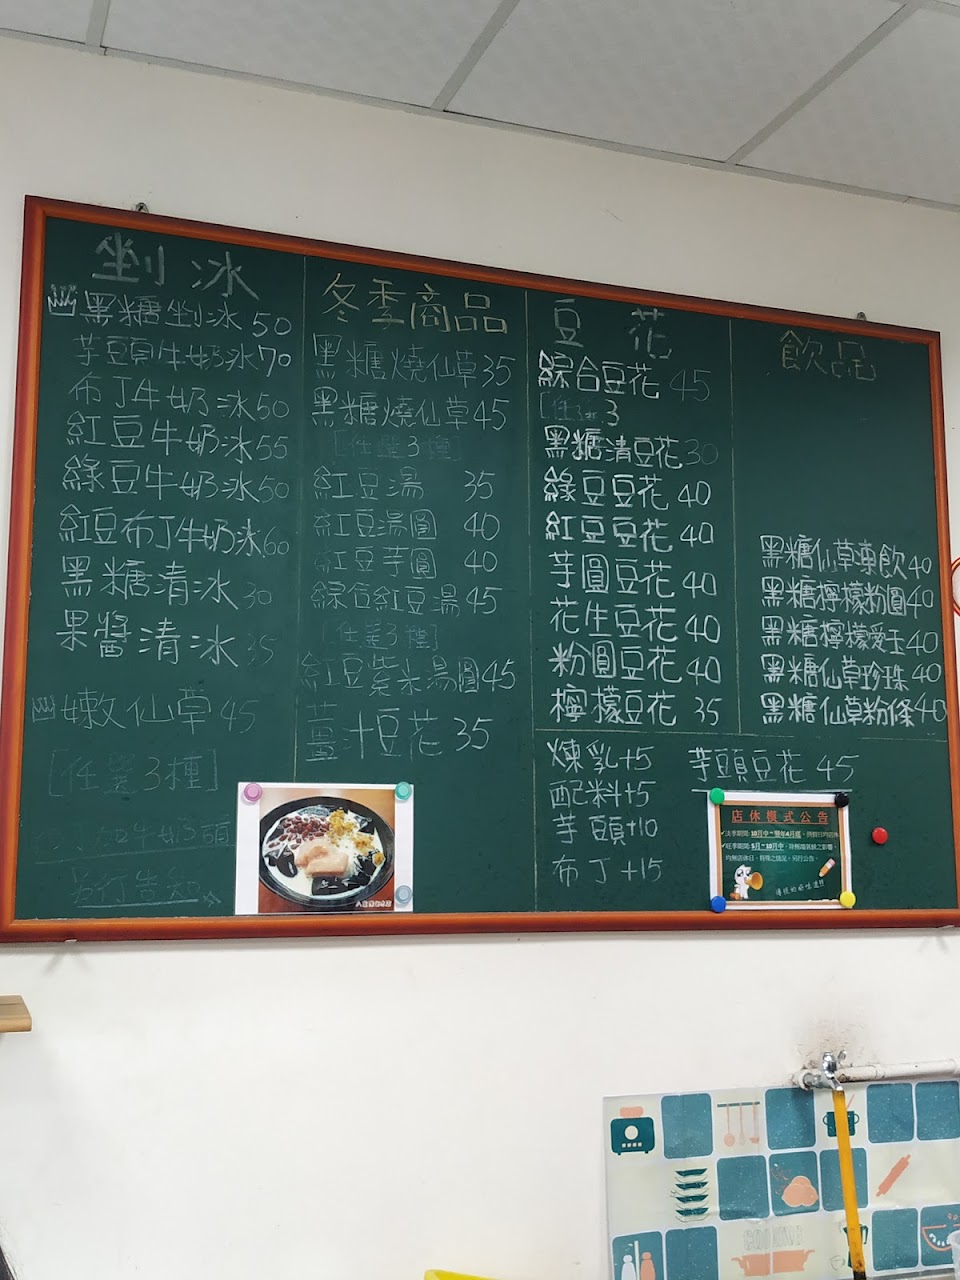 剉冰
黑糖剉冰 50
芋頭牛奶冰 70
布丁牛奶冰 50
紅豆牛奶冰 55
綠豆牛奶冰 50
紅豆布丁牛奶冰 60
黑糖清冰 30
果醬清冰 35
嫩仙草 45
[任選3種]
告知
冬季商品
黑糖燒仙草 35
黑糖燒仙草 45
[任選3種]
紅豆湯 35
紅豆湯圓 40
紅豆芋圓 40
綜合紅豆湯 45
[任選3種]
紅豆紫米湯圓 45
薑汁豆花 35
豆花
綜合豆花 45
3
黑糖清豆花 30
綠豆豆花 40
紅豆豆花 40
芋圓豆花 40
花生豆花 40
粉圓豆花 40
檸檬豆花 35
煉乳+5
配料+5
芋頭+10
布丁+15
芋頭豆花 45
飲品
黑糖仙草凍飲 40
黑糖檸檬粉圓 40
黑糖檸檬愛玉 40
黑糖仙草珍珠 40
黑糖仙草粉條 40
店休模式公告
淡季期間:10月中~翌年4月底
旺季期間:5月~10月中
傳統的好味道!!